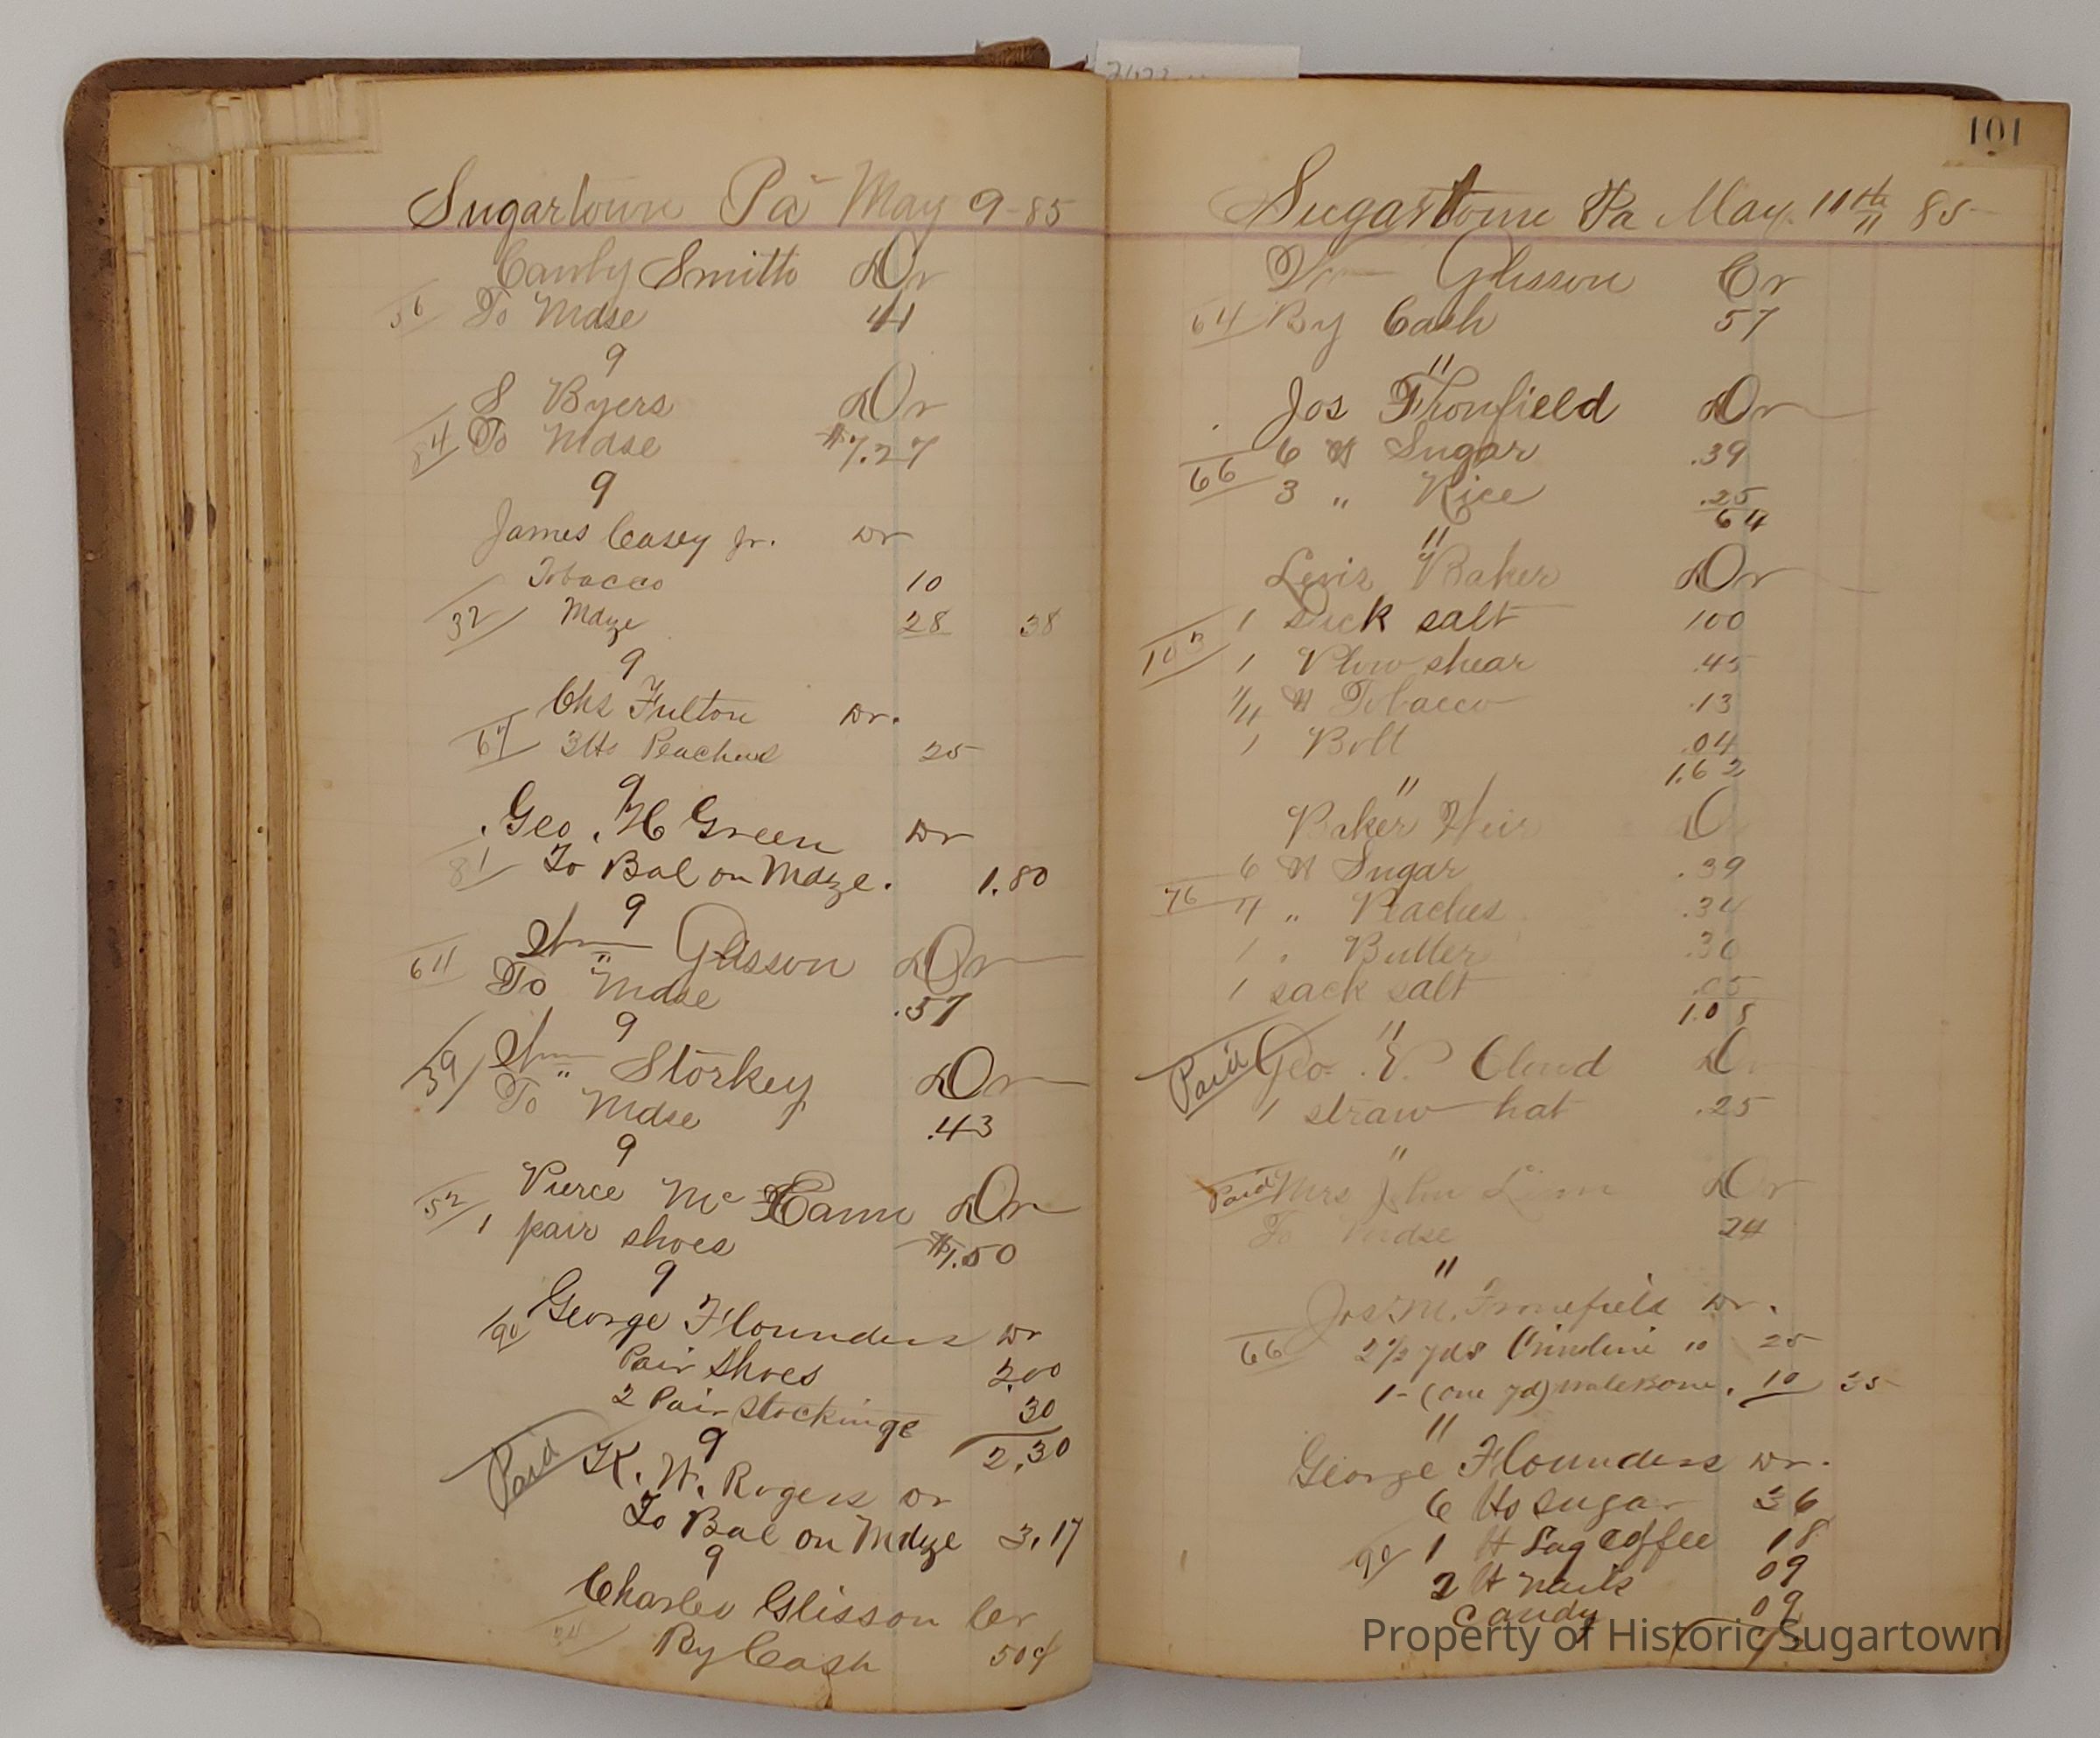 Sugartown Pa May 9-85
Canby Smith Dr
56 To Mdse 41
9
S Byers Dr
84 To Mdse $7.27
9
James Casey Jr. Dr
Tobacco 10
32 Mdze 28 38
9
Chs Fulton Dr.
67 3 lbs Peaches 25
9
Geo. H Green Dr
81 To Bal on Mdze. 1.80
9
Wm Glisson Dr
64 To Mdse .57
9
Wm Storkey Dr
39 To Mdse .43
9
Pierce McCann Dr
52 1 pair shoes $1.50
9
George Flounders Dr
90 Pair Shoes 2.00
2 Pair Stockings 30
2.30
9
Paid K. W. Rogers Dr
To Bal on Mdze 3.17
9
Charles Glisson Cr
By Cash 50¢
101
Sugartown Pa May. 11th 85
Wm Glisson Cr
64 By Cash 57
"
Jos Fronfield Dr
6 lb Sugar .39
66 3 " Rice .25
64
"
Levis Baker Dr
1 sack salt 100
103 1 Plow shear .45
1/4 lb Tobacco .13
1 Bolt .04
1.62
"
Baker Heir D
6 lb Sugar .39
76 4 " Peaches .34
1 " Butter .30
1 sack salt .05
1.08
"
Paid Geo. V. Cloud Dr
1 straw hat .25
"
Paid Mrs John Dr
To Mdse 24
"
Jos. M. Fronefield Dr.
66 2 1/2 yds Crinoline 10 25
1-(one yd) Whalebone. 10 35
"
George Flounders Dr.
6 lbs Sugar 36
90 1 lb Lag Coffee 18
2 lb nails 09
Candy 09
Property of Historic Sugartown